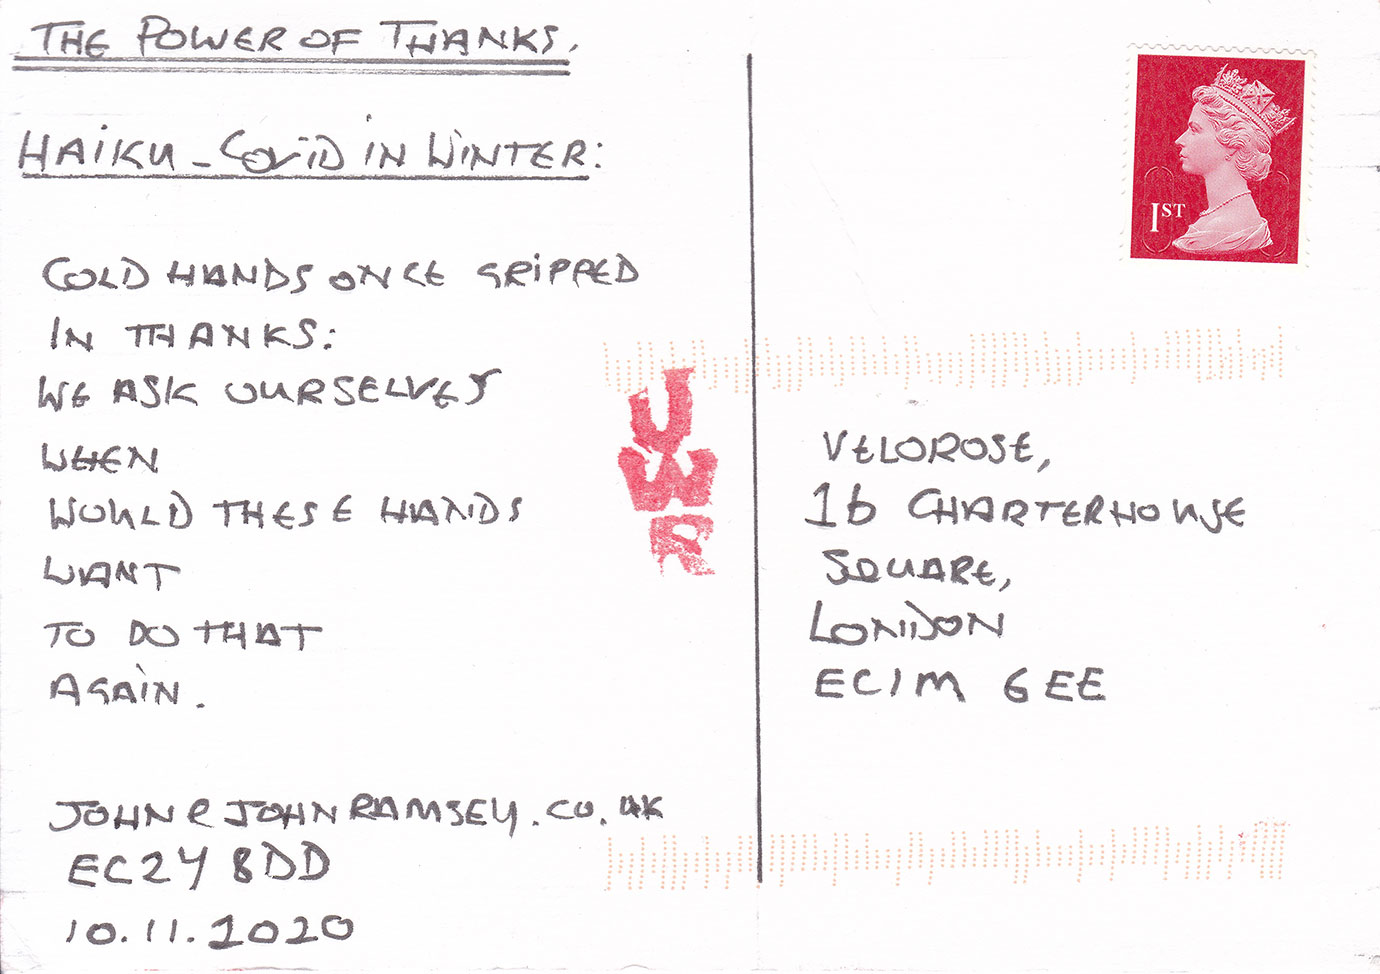 THE POWER OF THANKS.
HAIKU - COVID IN WINTER:
COLD HANDS ONCE GRIPPED
IN THANKS:
WE ASK OURSELVES
WHEN
WOULD THESE HANDS
WANT
TO DO THAT
AGAIN.
JOHN@JOHNRAMSEY.CO.UK
EC2Y 8DD
10.11.2020
UWR
1ST
VELOROSE,
1b CHARTERHOUSE
SQUARE,
LONDON
EC1M 6EE